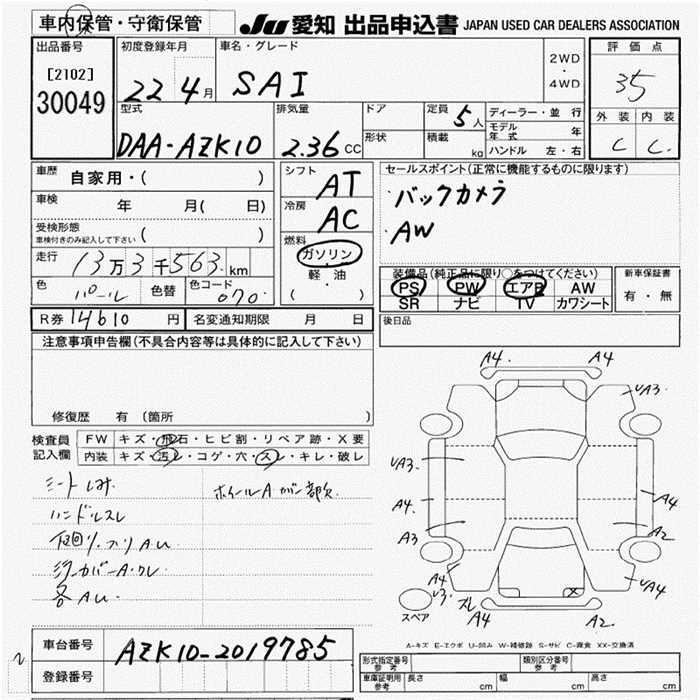 車内保管・守衛保管
JU 愛知 出品申込書 JAPAN USED CAR DEALERS ASSOCIATION
出品番号
[2102]
30049
初度登録年月
22 4月
車名・グレード
SAI
2WD
・
4WD
評価点
35
外装 内装
C C
型式
DAA-AZK10
排気量
2.36 CC
ドア
形状
定員 5人
積載 kg
ディーラー・並行
モデル年式 年
ハンドル 左・右
車歴 自家用・( )
車検 年 月( 日)
受検形態
車検付きのみ記入して下さい ( )
走行 13万3千563 km
色 パール 色替 色コード 070
シフト AT
冷房 AC
燃料
ガソリン
軽・油
( ・ )
セールスポイント(正常に機能するものに限ります)
・バックカメラ
・AW
装備品(純正品に限り○をつけてください)
PS PW エアB AW
SR ナビ TV カワシート
新車保証書
有・無
R券 14610 円 名変通知期限 月 日
後日品
注意事項申告欄(不具合内容等は具体的に記入して下さい)
修復歴 有 (箇所
検査員
記入欄
FW キズ・飛石・ヒビ割・リペア跡・X要
内装 キズ・汚レ・コゲ・穴・スレ・キレ・破レ
シートしみ.
ハンドルスレ
ミラーカバーA・クレ
各AU.
A4. A4
UA3.
UA3.
A4. A4
A3 A2
A4 U3. UA4
スレ
A4 A2.
スペア
A-キズ E-エクボ U-凹み W-補修跡 S-サビ C-腐食 XX-交換済
車台番号 AZK10-2019785
登録番号
2
形式指定番号 参考
類別区分番号 参考
車庫証明用 参考 長さ cm 幅 cm 高さ cm